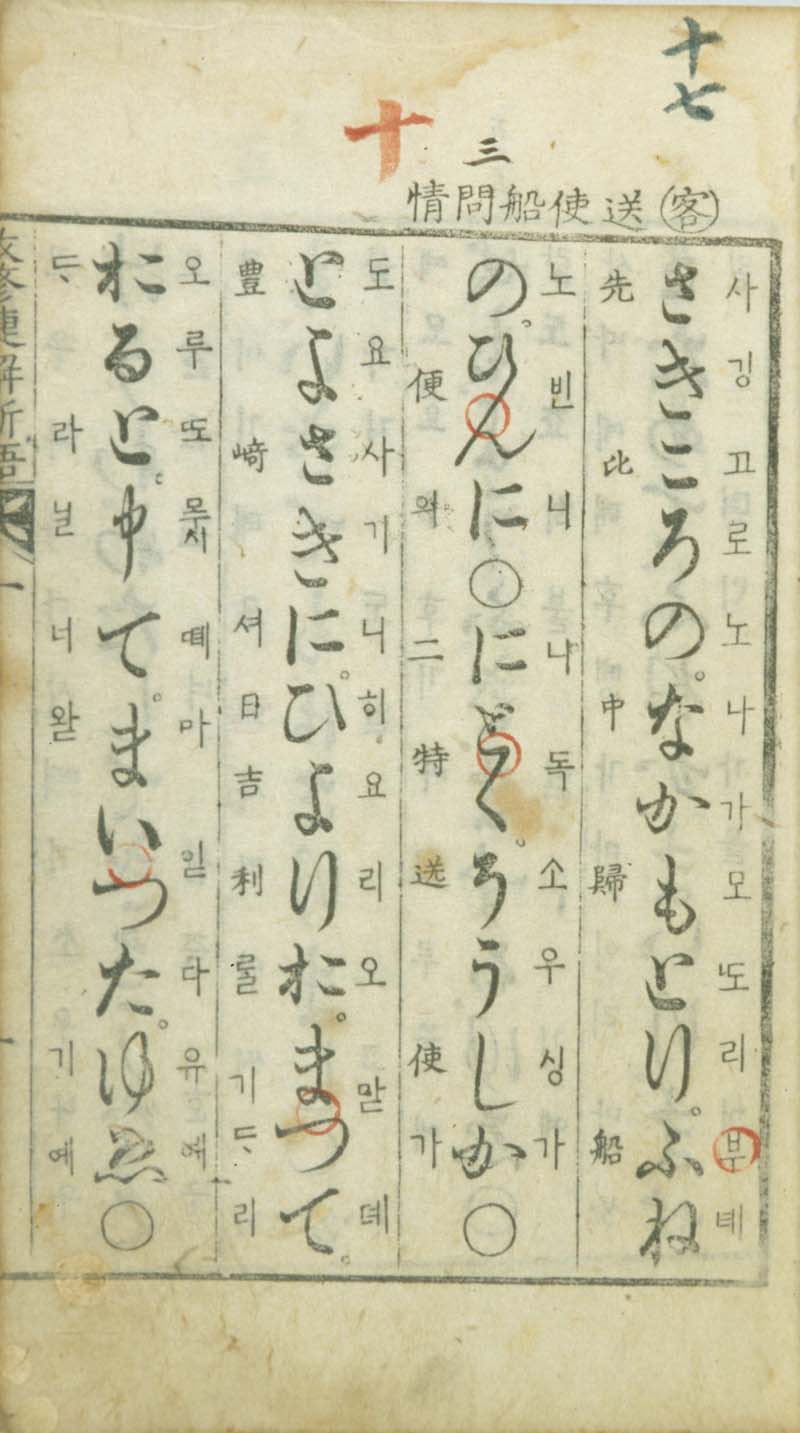 十七
十
三
客送使船問情
사깅고로노나가모도리부녜
さきころのなかもとりふね
先比中歸船
노빈니나독소우싱가
のひんに○にとくそうしか○
便의二特送使가
도요사기니히요리오맏뎨
とよさきにひよりおまつて
豊﨑셔日吉利룰기ᄃᆞ리
오루또뎨마읻다유예
おると申てまいつたゆゑ○
ᄃᆞ라닐너왇기예
改修捷解新語 一